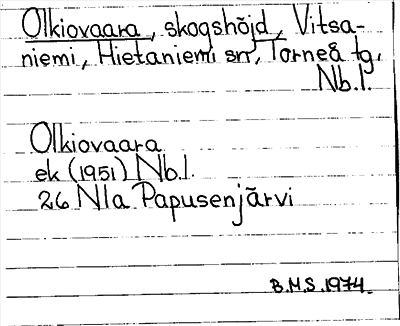 Olkiovaara, skogshöjd, Vitsa-
niemi, Hietaniemi sn, Torneå tg,
Nb.l.
Olkiovaara
ek (1951) Nb.l.
26 Nla Papusenjärvi
B.M.S. 1974.